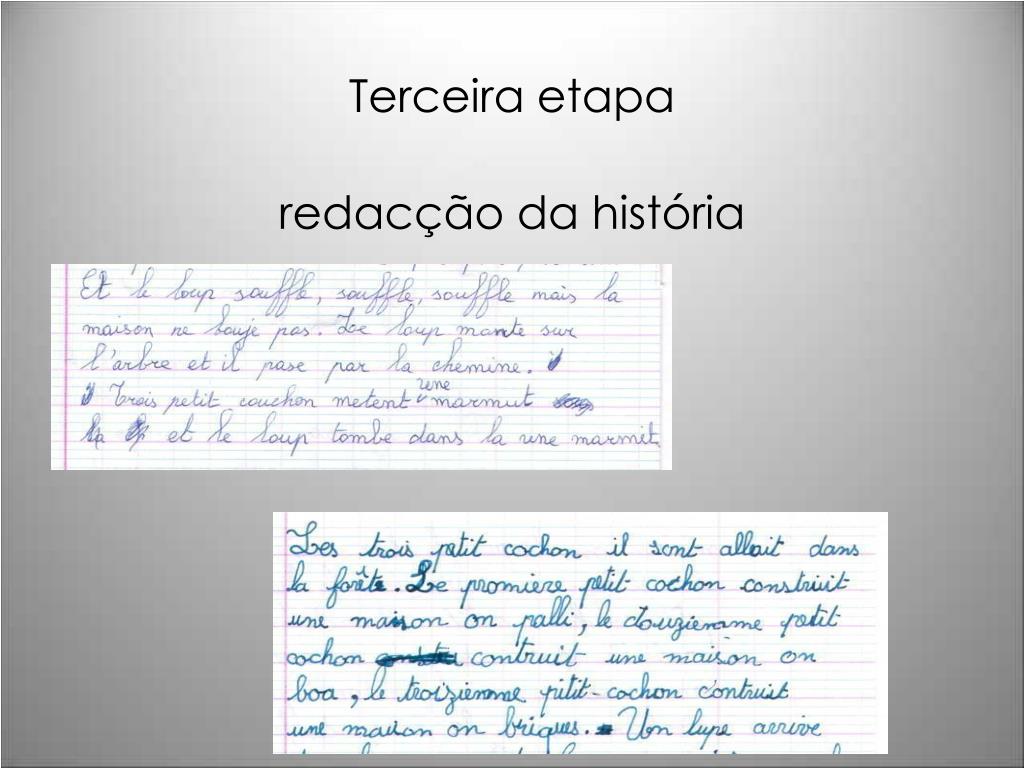 Terceira etapa
redacção da história
Et le loup souffle, souffle, souffle mais la
maison ne bouje pas. Le loup monte sur
l'arbre et il pase par la chemine.
Trois petit couchon metent une marmut
la et le loup tombe dans la une marmit
Les trois petit cochon il sont allait dans
la forête. Le promiere petit cochon construit
une maison on palli, le douzienme petit
cochon contruit une maison on
boa, le troizienme pitit-cochon contruit
une maison on briques. Un lupe arrive